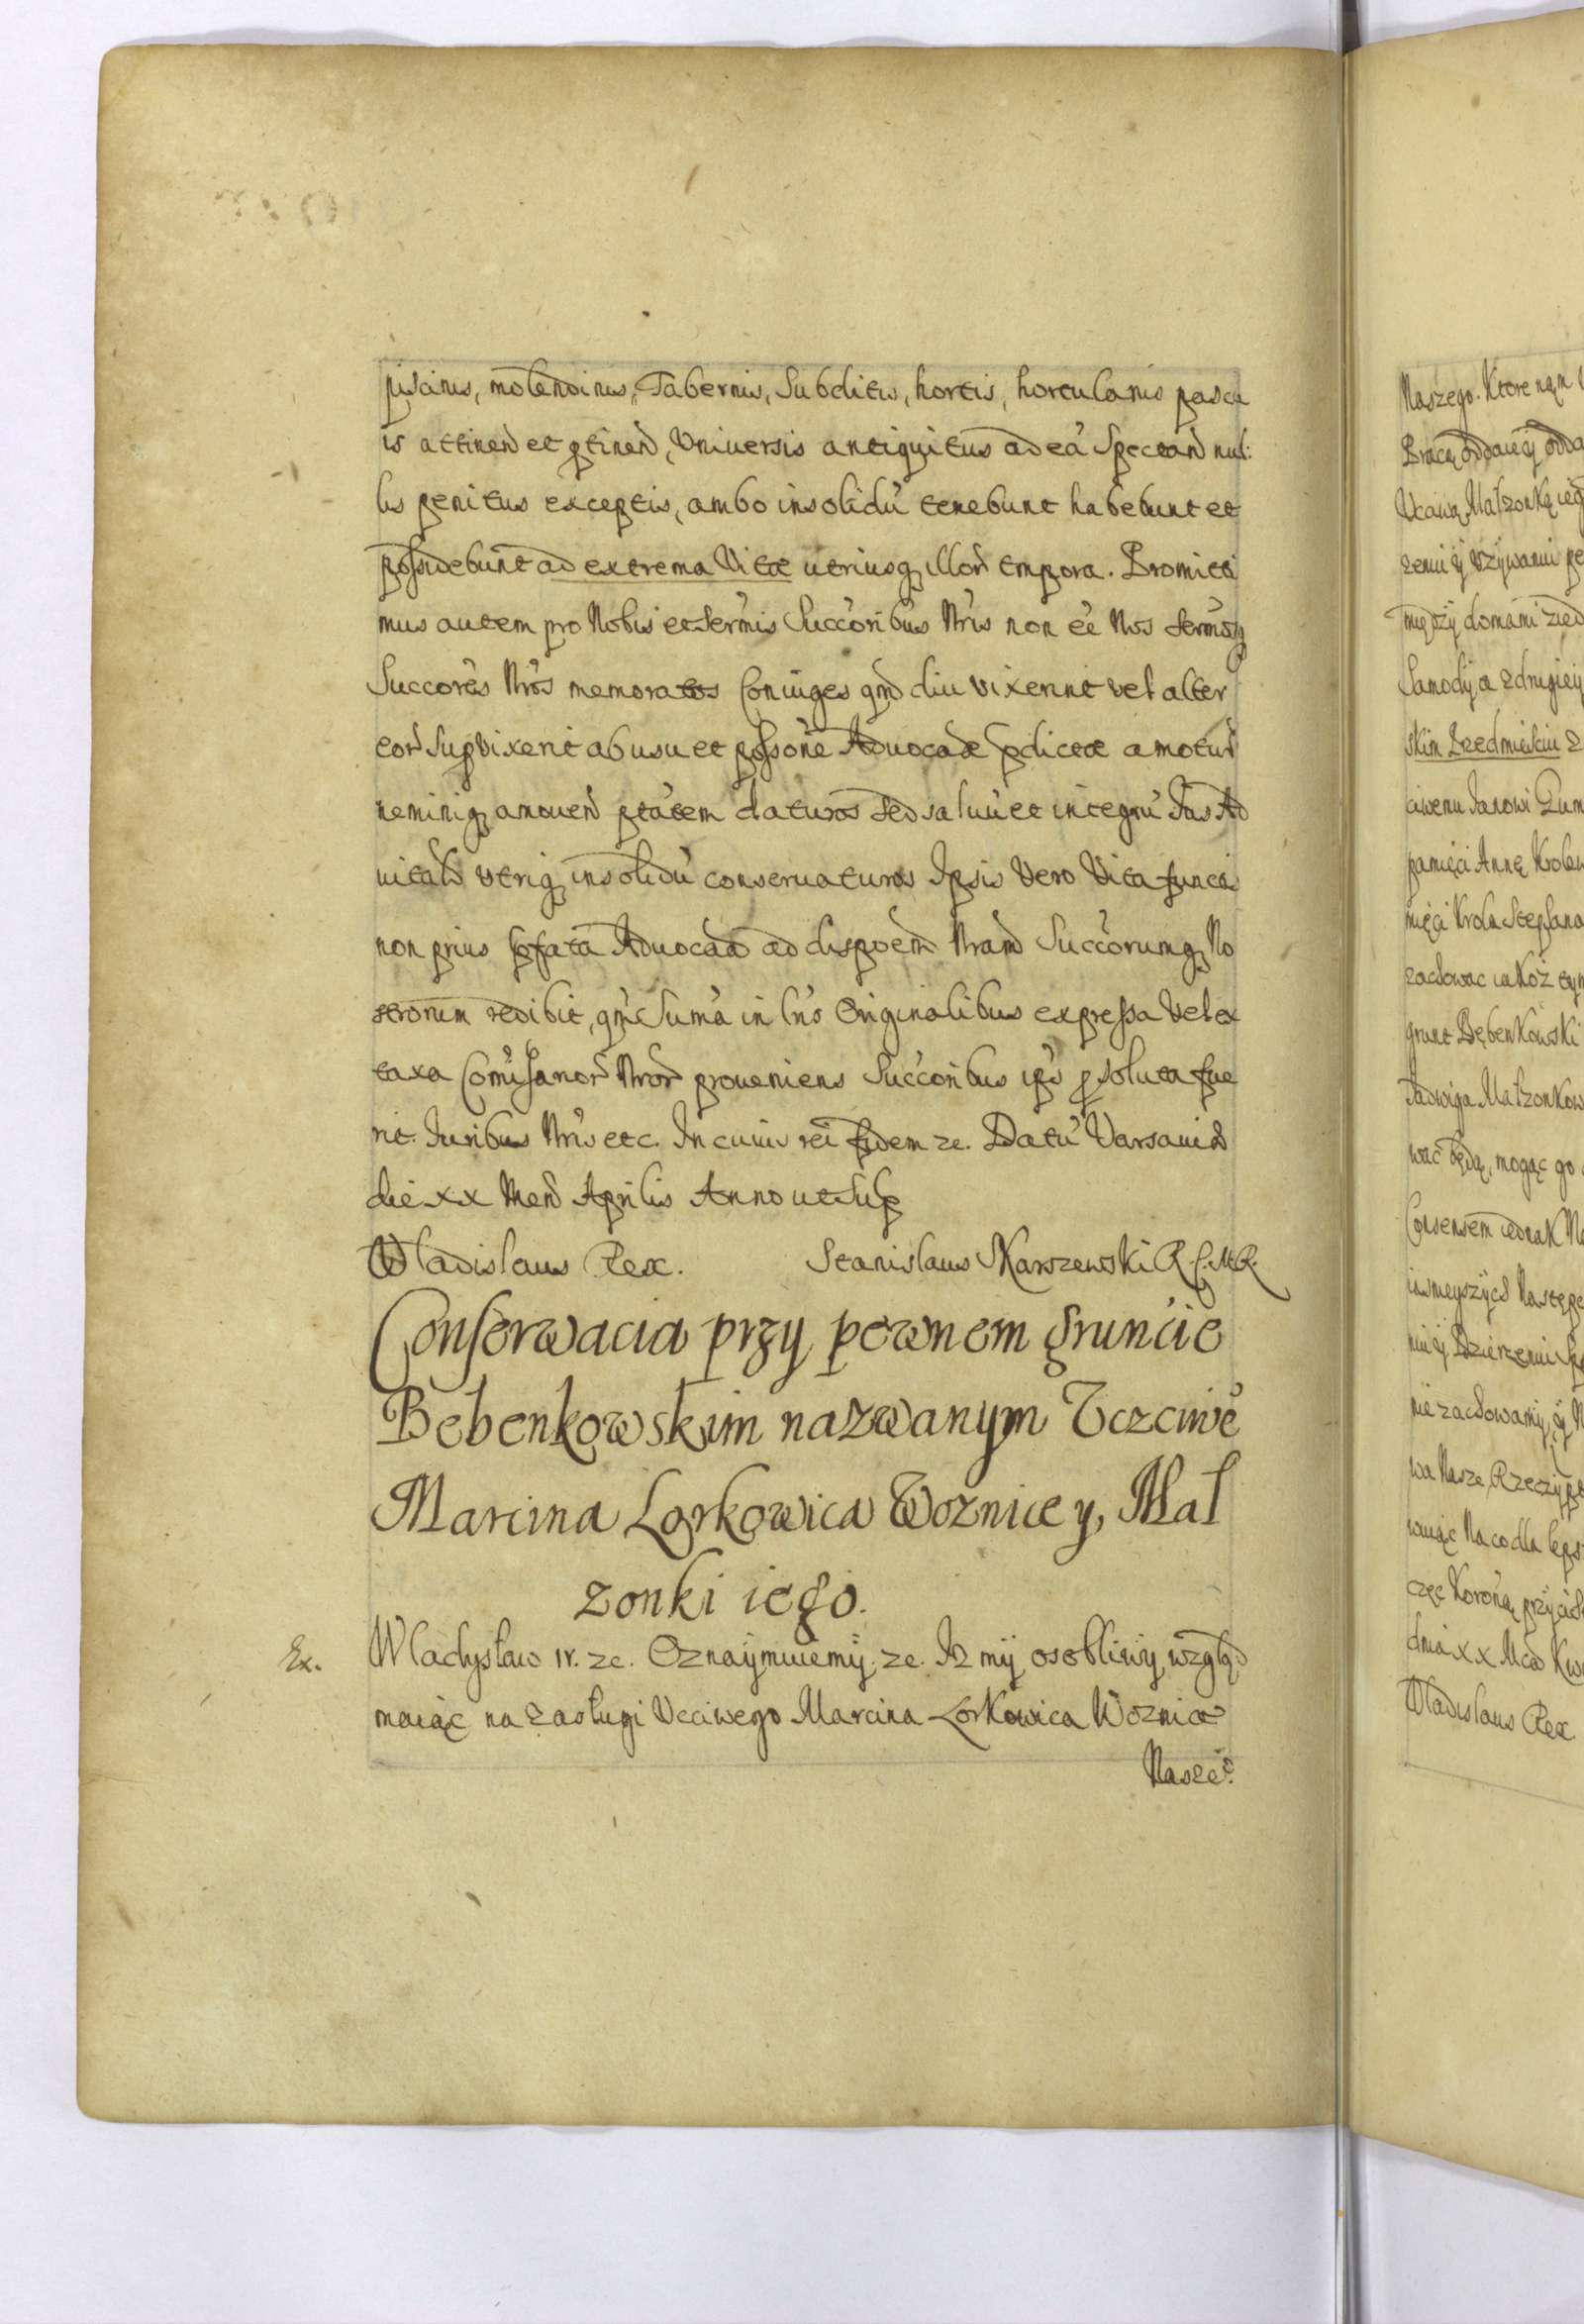 piscinis, molendinis, Tabernis, Subditis, hortis, hortulanis pascu
is attinen et ptinen, Universis antiquitus ad ea Spectan nul:
lis penitus exceptis, ambo insolidu tenebunt habebunt et
possidebunt ad extrema Vitæ utriusq illor tempora. Promitti
mus autem pro Nobis et Sermis Succoribus Nris non ee Nos Sermosq
Succores Nros memoratos Coniuges qmd diu vixerint vel alter
eor supvixerit ab usu et possone Advocatiæ pdictæ amotur
neminiq amoven ptatem daturos sed salvu et integru Ius Ad
vitale utriq insolidu conservaturos Ipsis Vero Vita functis
non prius pfata Advocatia ad dispoem Nram Succorumq No
strorum redibit, qm Suma in lris Originalibus expressa Vel ex
taxa Comissarior Nror proveniens Succoribus ips psoluta fue
rit. Iuribus Nris etc. In cuius rei fidem zc. Datu Varsaviæ
die xx Men Aprilis Anno ut Sup
Wladislaus Rex. Stanislaus Skarszewski R.C.M.R.
Conserwacia przy pewnem gruncie
Bebenkowskim nazwanym Uczciwe
Marcina Lorkowica Woznice y, Mał
zonki iego.
Ex. Wladysław IV. zc. Oznaymuiemy. zc. Iz my osobliwy wzglą
maiąc na zasługi Uczciwego Marcina Lorkowica Woznice
Nasze
Naszego. Ktore nąm
Ucciwą Małzonkę ieg
zeniu y uzywaniu pe
między domami zied
Samody a z drugiey
skim Przedmieściu z
ciwemu Janowi
pamięci Annę Krolew
mięci Krola Stephana
zachowac iakoz tym
grunt Bębenkowski
Jadwiga Małzonkow
wać będą, mogąc go
Consensem iednak Na
iasnieyszych Następc
niu y Dzierzeniu
nie zachowamy, y N
wa Nasze, Rzeczyp
waiąc Na co dla leps
częc Koronną przycisn
dnia xx Mca Kwi
Wladislaus Rex